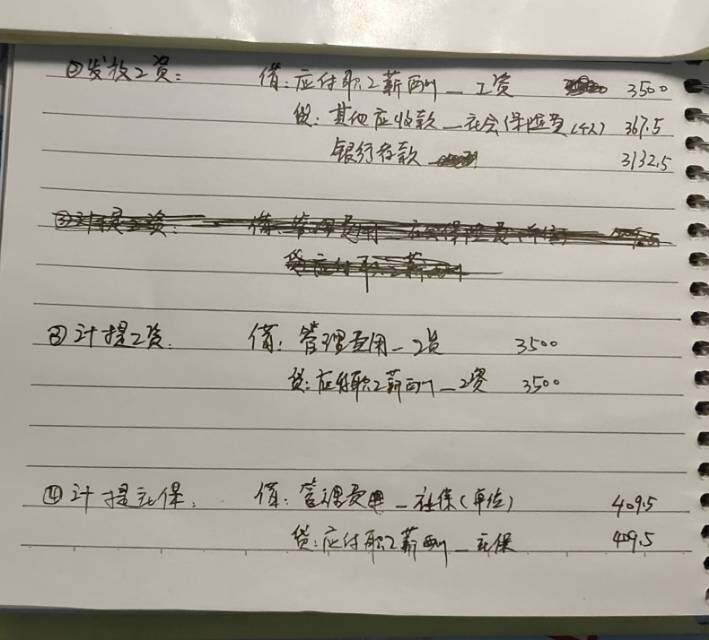 ②发放工资: 借:应付职工薪酬—工资 3500
贷:其他应收款—社会保险费(个人) 367.5
银行存款 3132.5
③计提工资. 借:管理费用—工资 3500
贷:应付职工薪酬—工资 3500
④计提社保. 借:管理费用—社保(单位) 409.5
贷:应付职工薪酬—社保 409.5